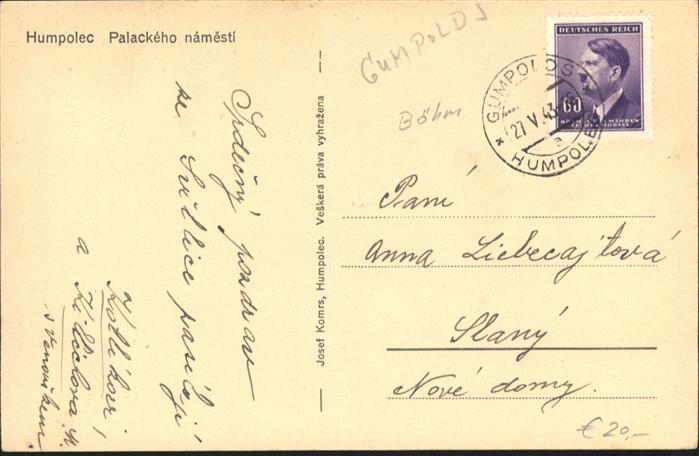 Humpolec Palackého náměstí
GUMPOLDS
Böhm
DEUTSCHES REICH
60
BÖHMEN u. MÄHREN
ČECHY a MORAVA
GUMPOLDS
27.V.43
a
HUMPOLEC
Srdečný pozdrav
ze Světlice posílají
a
a
Josef Komrs, Humpolec. Veškerá práva vyhražena
Paní
Anna Liebecajtová
Slaný
Nové domy.
€ 20,-